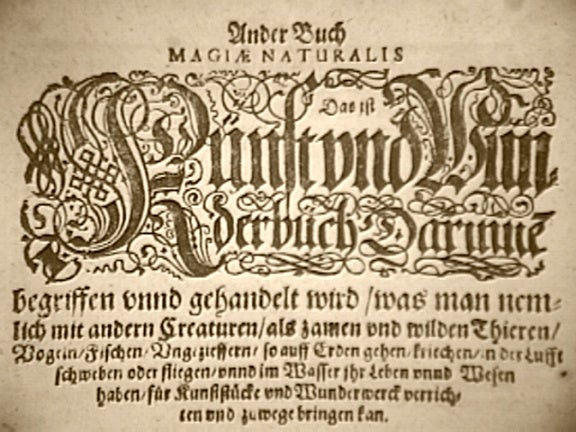 Ander Buch
MAGIÆ NATURALIS
Das ist
Künst vnd Wun-
derbuch Darinnē
begriffen vnnd gehandelt wird / was man nem-
lich mit andern Creaturen / als zamen vnd wilden Thieren /
Vogeln / Fischen / Vngezieffern / so auff Erden gehen / kriechen / in der Lufft
schweben oder fliegen / vnnd im Wasser jhr Leben vnnd Wesen
haben / für Kunststücke vnd Wunderwerck verrich-
ten vnd zuwege bringen kan.